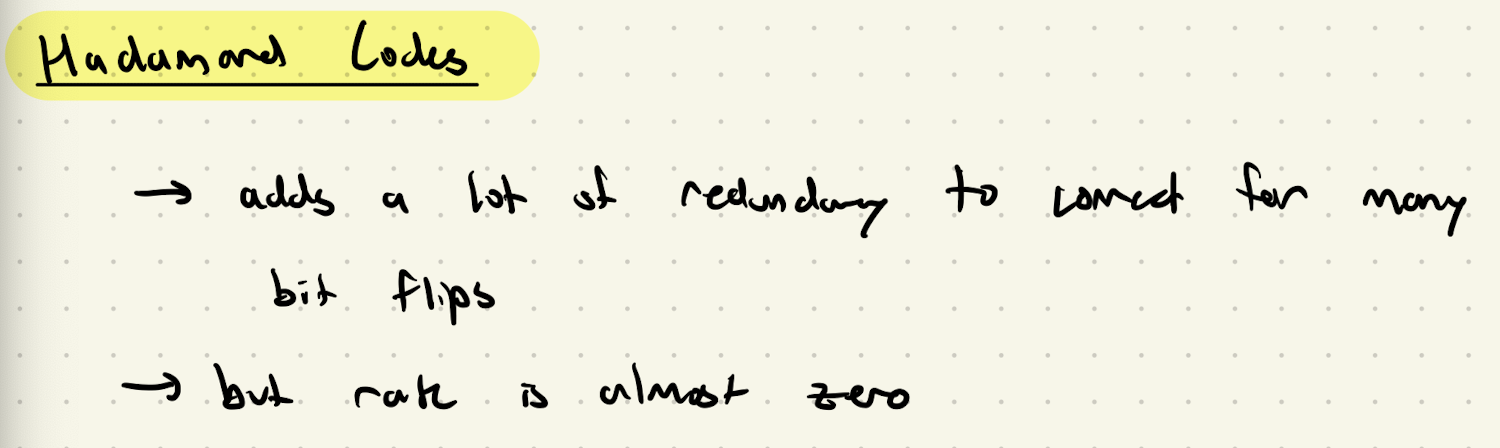 Hadamard Codes
→ adds a lot of redundancy to correct for many
bit flips
→ but rate is almost zero